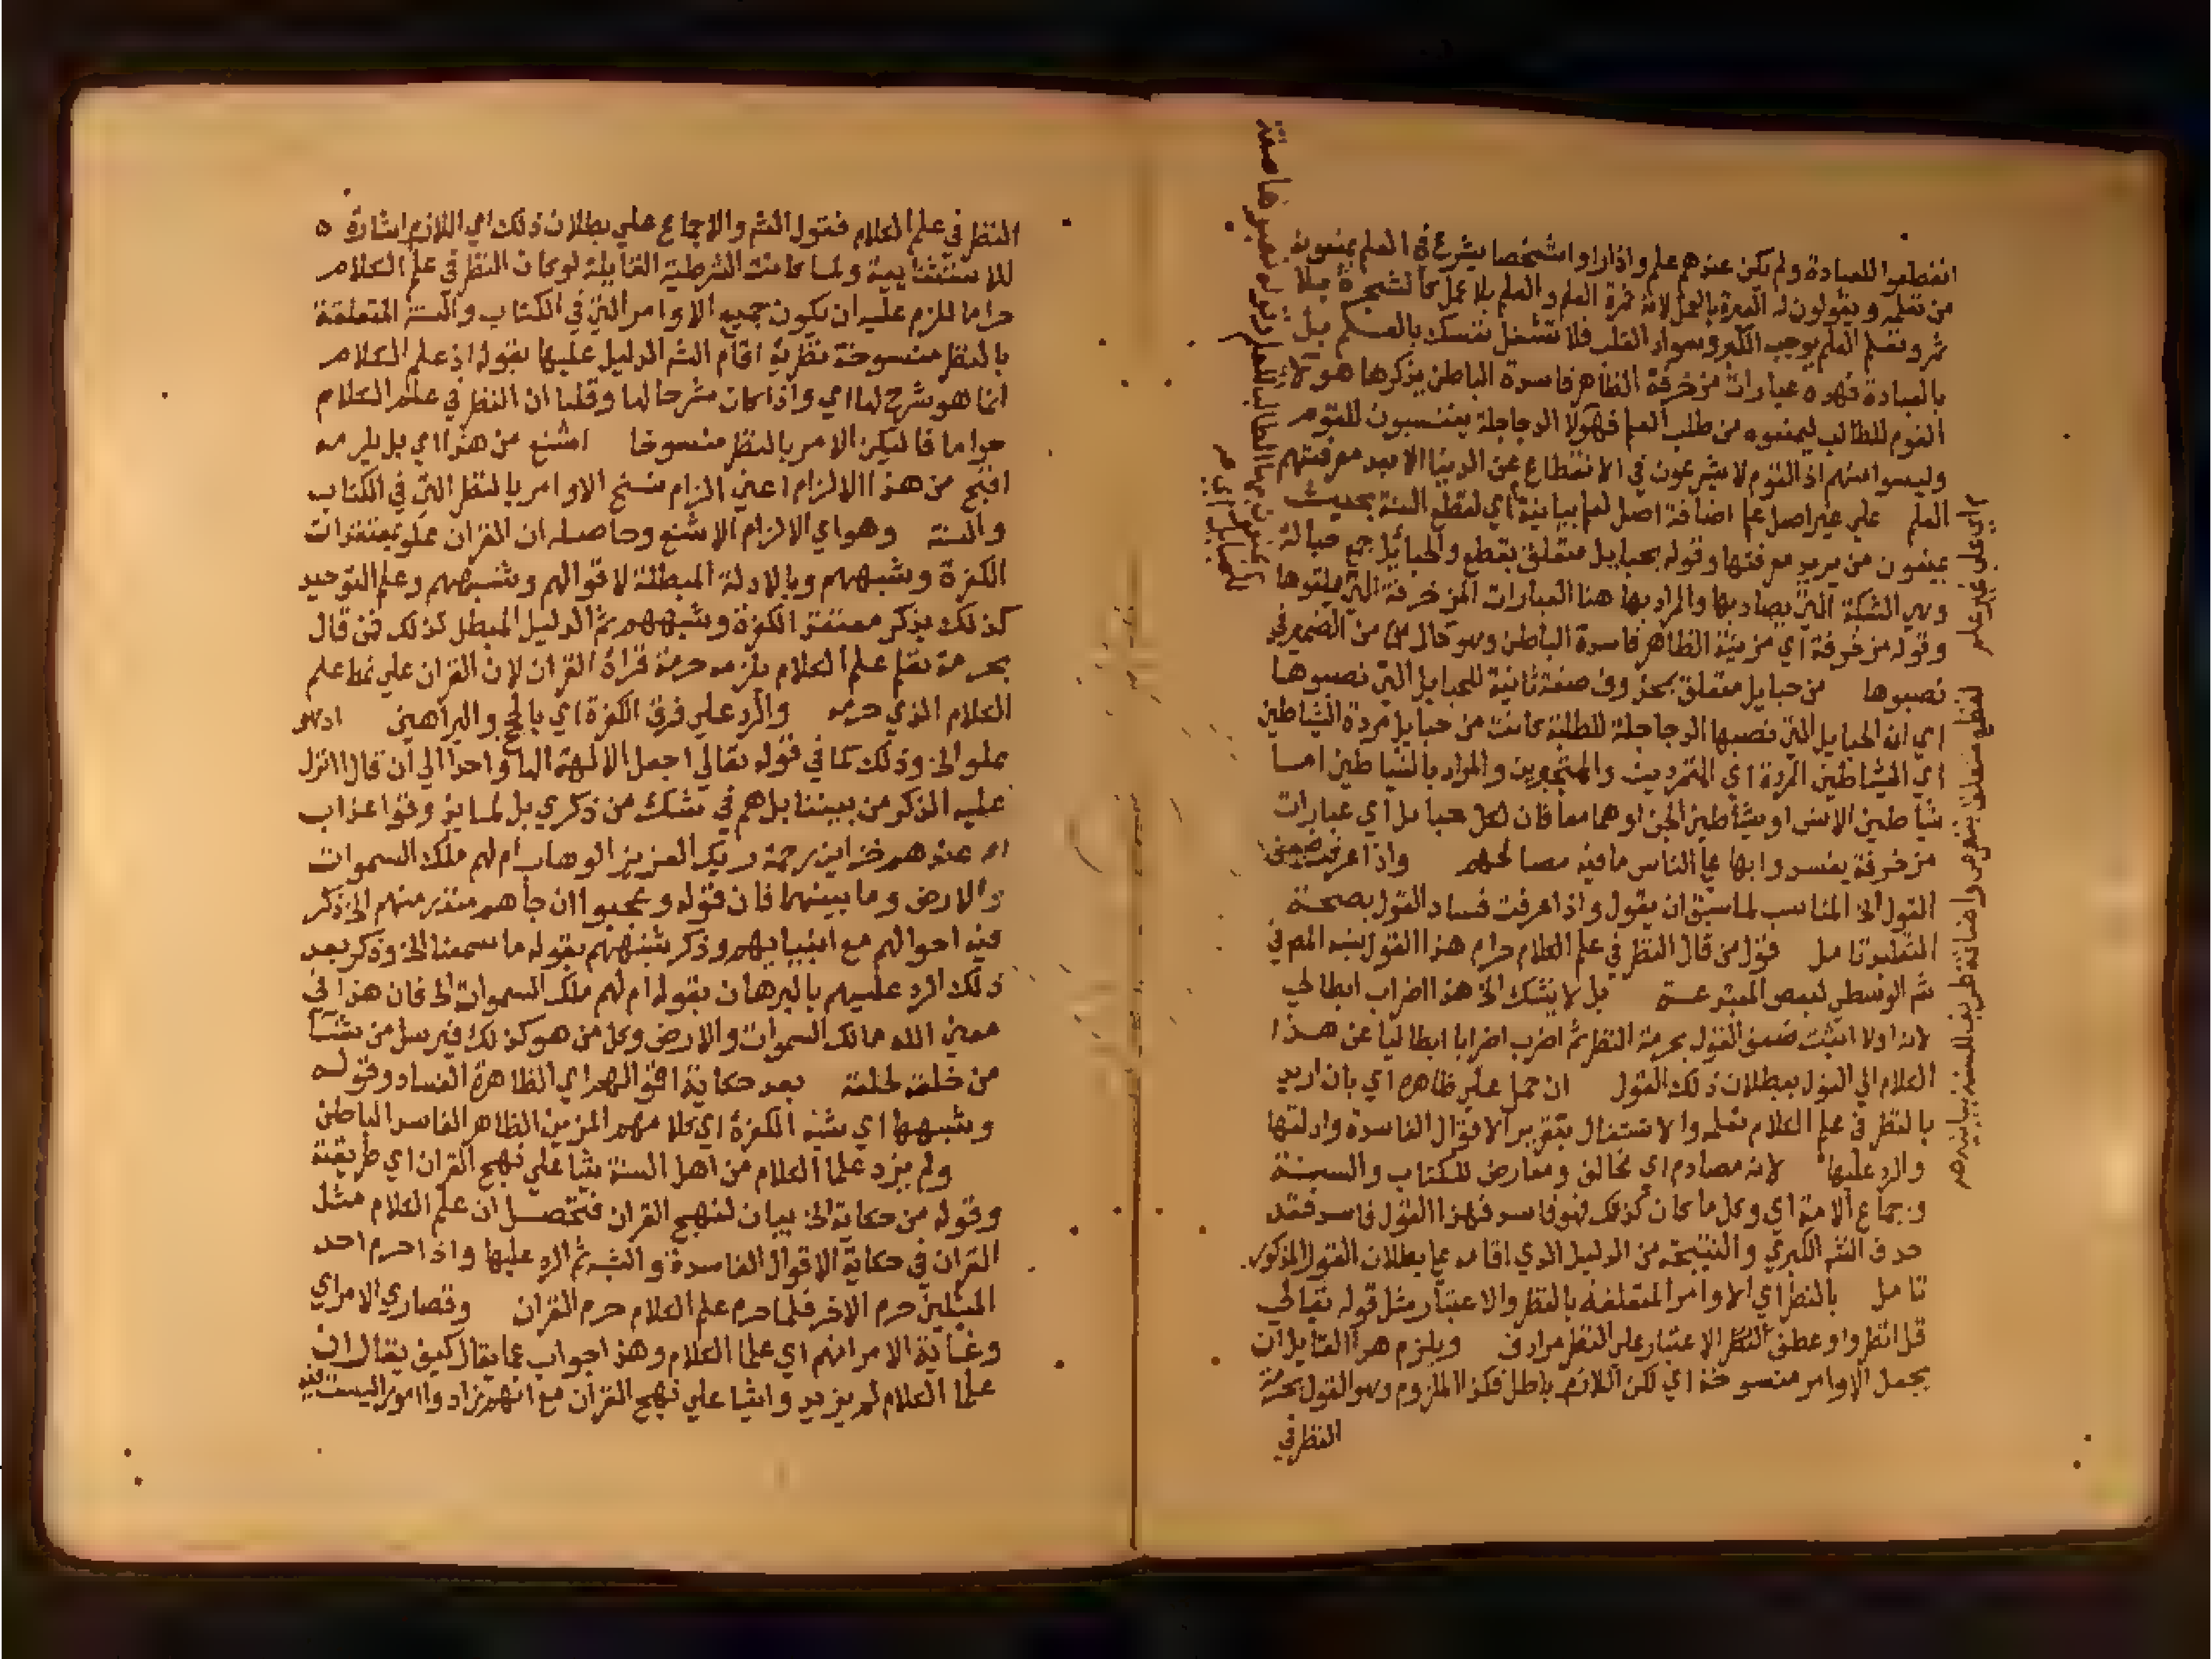 انقطعوا للعبادة ولم يكن عندهم علم واذا راوا شخصا يشرع في العلم يمنعونه
من تعلمه ويقولون له العبرة بالعمل لانه ثمرة العلم والعلم بلا عمل كالشجرة بلا
ثمر وتعلم العلم يوجب الكبر وسواد القلب فلا تشغل نفسك بالعلم بل
بالعبادة فهذه عبارات مزخرفة الظاهر فاسدة الباطن يذكرها هولاء
القوم للطالب ليمنعوه من طلب العلم فهولا الدجاجلة ينتسبون للقوم
وليسوا منهم اذ القوم لا يشرعون في الانقطاع عن الدنيا الا بعد معرفتهم
العلم على غير اصل علم اضافة اصل لعلم بيانية اي لقطع السنة بحديث
يمنعون من يريد معرفتها وقوله بحبايل متعلق بقطع والحبائل جمع حبالة
وهي الشبكة التي يصاد بها والمراد بها هنا العبارات المزخرفة التي يلقوها
وقوله مزخرفة اي مزينة الظاهر فاسدة الباطن وهو حال من الضمير في
نصبوها من حبايل متعلق بمحذوف صفة ثانية للحبايل التي نصبوها
اي ان الحبايل التي نصبها الدجاجلة للطلبة كانت من حبايل مردة الشياطين
اي الشياطين المردة اي المتمردين والمتجبرين والمراد بالشياطين اما
شياطين الانس او شياطين الجن او هما معا فان لكل حبايل اي عبارات
مزخرفة يفسدوا بها على الناس ما فيه مصالحهم واذا عرفت ضعف
القول الخ المناسب لما سبق ان يقول واذا عرفت فساد القول بصحة
التقليد تامل قول من قال النظر في علم الكلام حرام هذا القول نسبه المص في
شم الوسطى لبعض المبتدعة بل لا يشك الخ هذا اضراب ابطالي
لانه اولا اثبت ضعف القول بحرمة النظر ثم اضرب اضرابا ابطاليا عن هذا
الكلام الي القول ببطلان ذلك القول ان حمل على ظاهره اي بان اريد
بالنظر في علم الكلام تعلمه والاشتغال بتقرير الاقوال الفاسدة وادلتها
والرد عليها لانه مصادم اي مخالف ومعارض للكتاب والسنة
وجماع الامة اي وكل ما كان كذلك فهو فاسد فهذا القول فاسد فقد
حذف الشم الكبرى والنتيجة من الدليل الذي اقامه على بطلان القول المذكور
تامل بالنظر اي الاوامر المتعلقة بالنظر والاعتبار مثل قوله تعالي
قل انظروا وعطف الاعتبار على النظر مرادف ويلزم هذا القايل ان
يجعل الاوامر منسوخة اي لكن اللازم باطل فكذا الملزوم وهو القول بحرمة
النظر في
اي على غير علم
لقطع متعلق بتعرض واضافة طريق للسنة بيانية
النظر في علم الكلام فقول الشم والاجماع على بطلان ذلك اي اللازم اشارة ه
للاستثنائية ولما كانت الشرطية القايلة لو كان النظر في علم الكلام
حراما للزم عليه ان يكون جميع الاوامر التي في الكتاب والسنة المتعلقة
بالنظر منسوخة نظرية اقام الشم الدليل عليها بقوله اذ علم الكلام
انما هو شرح لها اي واذا كان شرحا لها وقلنا ان النظر في علم الكلام
حراما فاليكن الامر بالنظر منسوخا اشنع من هذا اي بل يلزمه
اقبح من هذا الالزام اعني الزام نسخ الاوامر بالنظر التي في الكتاب
والسنة وهو اي الالزام الاشنع وحاصله ان القران مملو بمعتقدات
الكفرة وشبههم وبالادلة المبطلة لاقوالهم وشبههم وعلم التوحيد
كذلك يذكر معتقد الكفرة وشبههم ثم الدليل المبطل لذلك فمن قال
بحرمة تعلم علم الكلام يلزمه حرمة قراة القران لان القران على نمط علم
الكلام الذي حرمه والرد على فرق الكفرة اي بالحجج والبراهين اذ هو
مملو الخ وذلك كما في قوله تعالي اجعل الالهة الها واحدا الي ان قال اانزل
عليه الذكر من بيننا بل هم في شك من ذكري بل لما يذوقوا عذاب
ام عندهم خزاين رحمة ربك العزيز الوهاب ام لهم ملك السموات
والارض وما بينهما فان قوله وعجبوا ان جاهم منذر منهم الخ ذكر
فيه احوالهم مع انبيايهم وذكر شبههم بقوله ما سمعنا الخ وذكر بعد
ذلك الرد عليهم بالبرهان بقوله ام لهم ملك السموات الخ فان هذا في
معني الله مالك السموات والارض وكل من هو كذلك فيرسل من يشا
من خلقه لخلقه بعد حكاية اقوالهم اي الظاهرة الفساد وقوله
وشبهها اي شبه الكفرة اي كلامهم المزين الظاهر الفاسد الباطن
ولم يزد علما الكلام من اهل السنة شيا على نهج القران اي طريقته
وقوله من حكاية الخ بيان لنهج القران فتحصل ان علم الكلام مثل
القران في حكاية الاقوال الفاسدة والشبه ثم الرد عليها واذا حرم احد
المثلين حرم الاخر فلما حرم علم الكلام حرم القران وقصارى الامر اي
وغاية الامر انهم اي علما الكلام وهذا جواب عما يقال كيف يقال ان
علما الكلام لم يزيدوا شيا على نهج القران مع انهم زادوا امورا ليست فيه